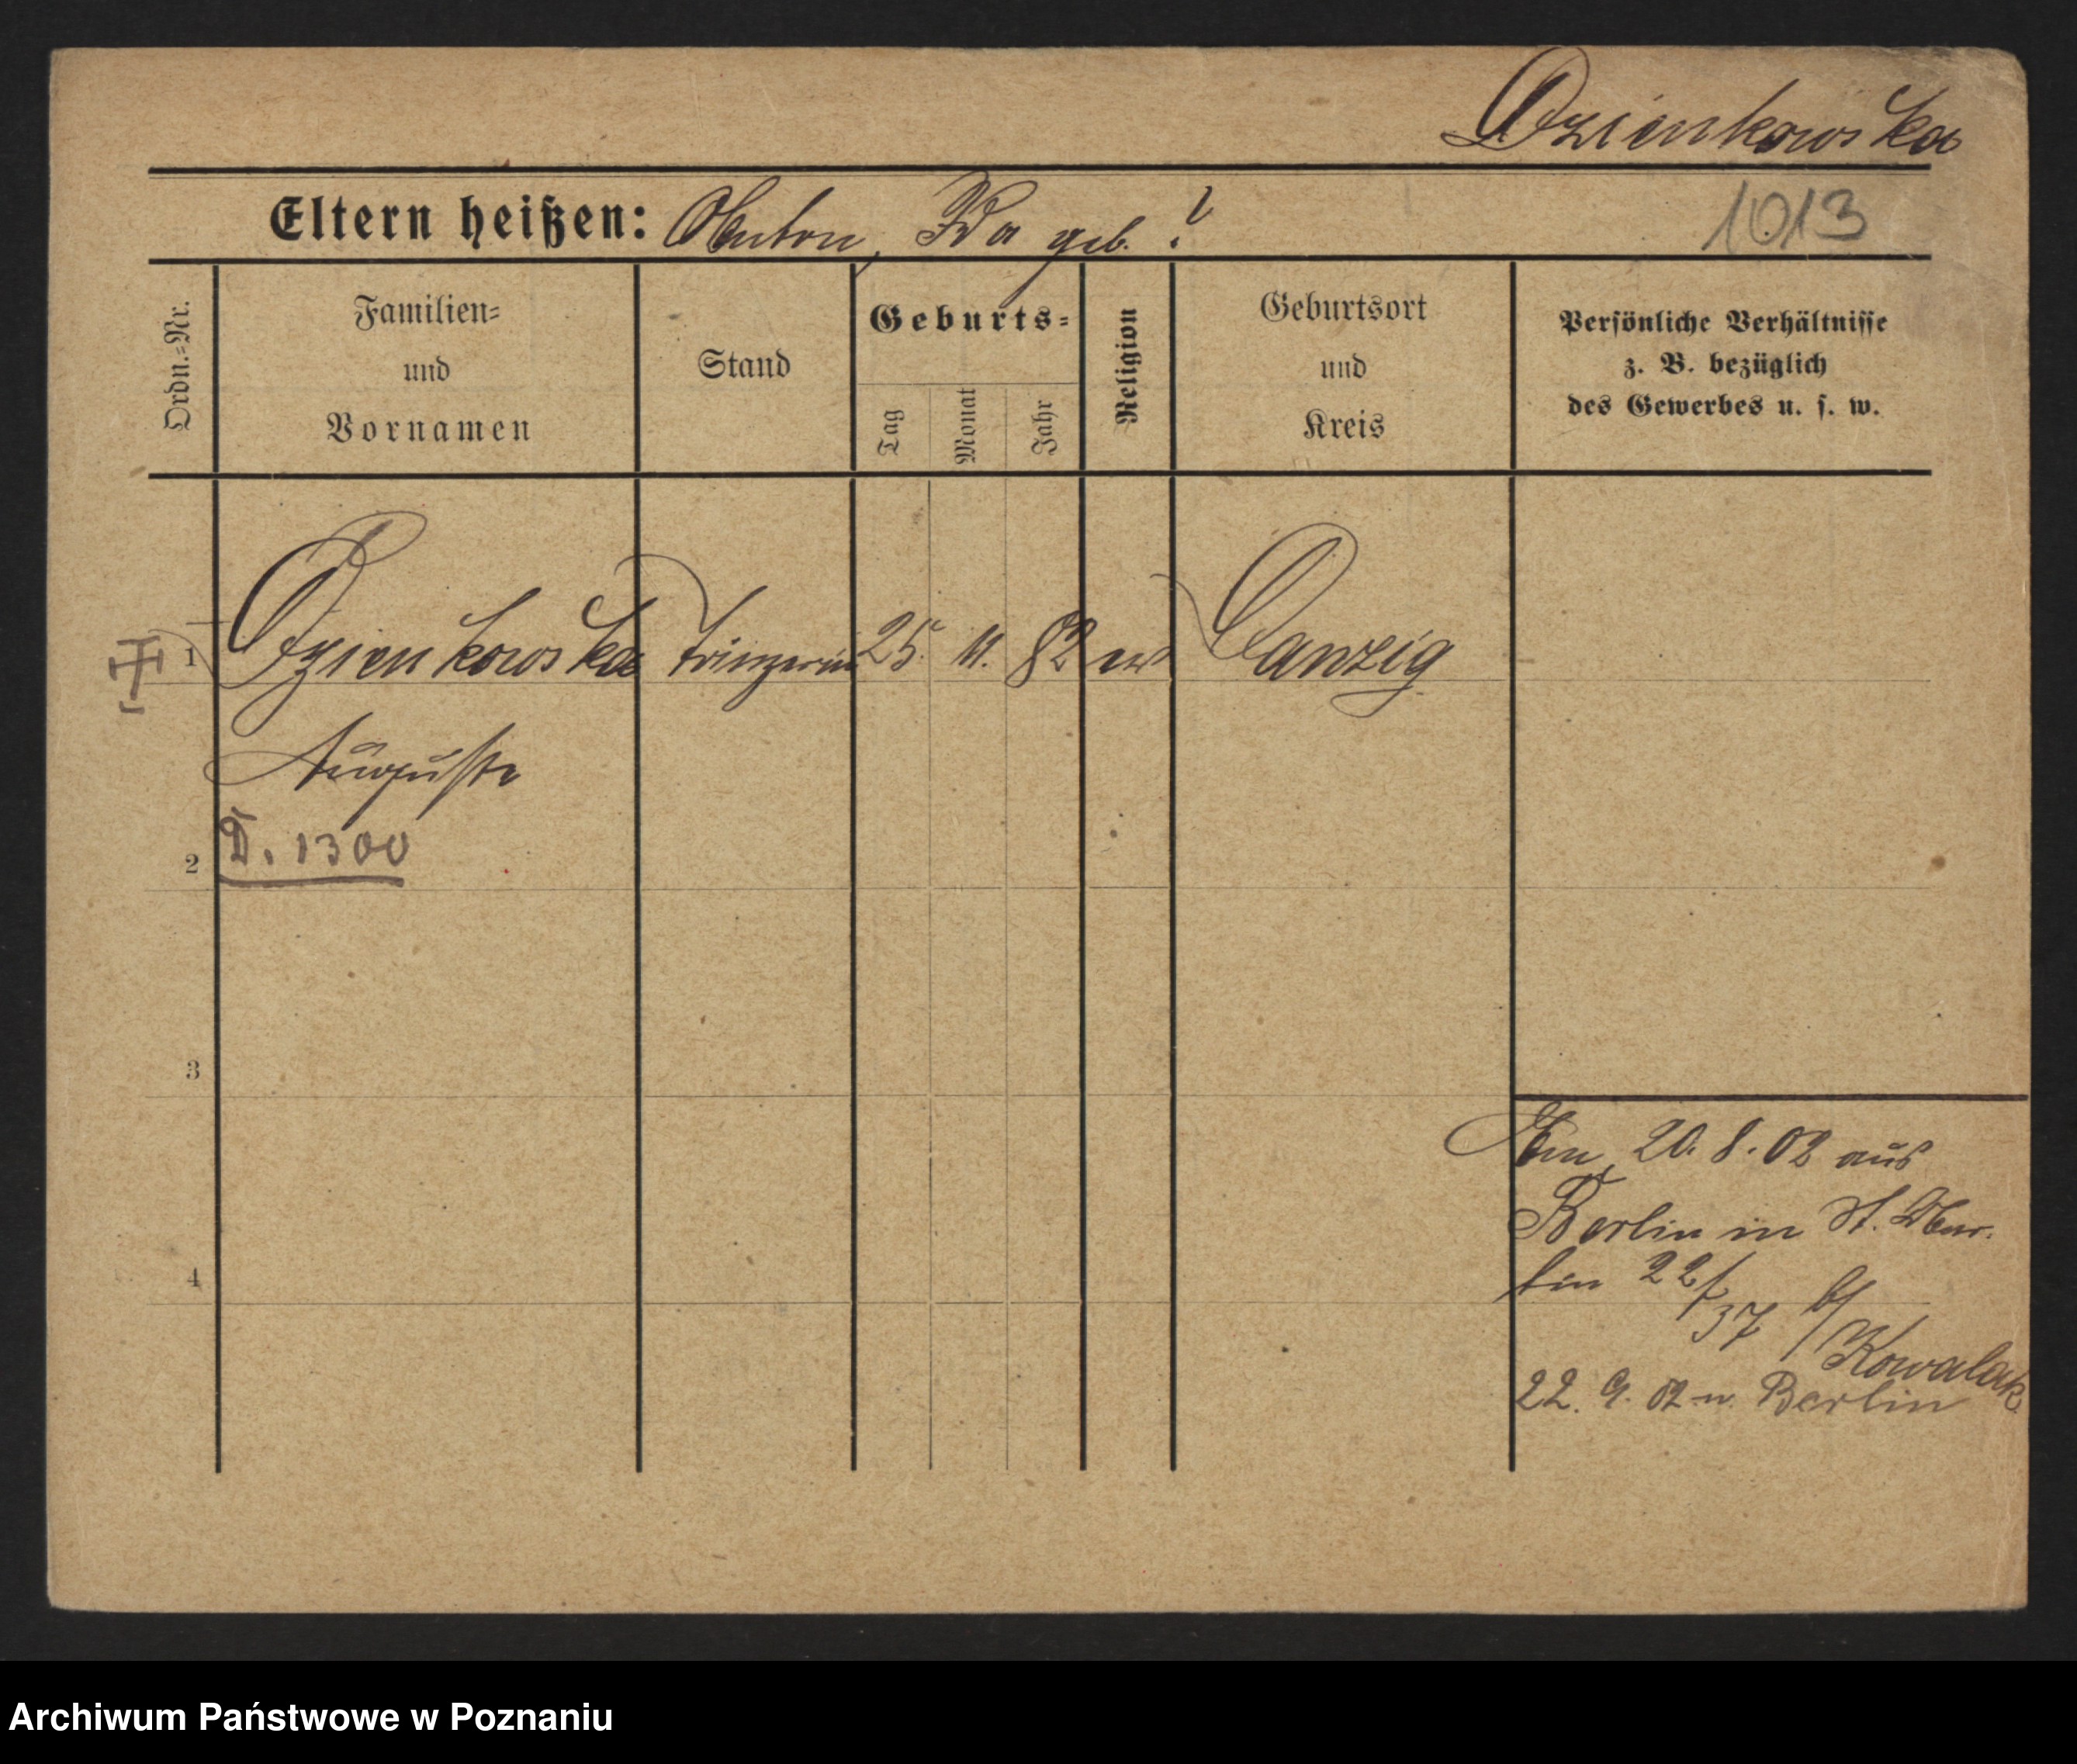 Dzienkowska
Eltern heißen: Anton, Ida geb. ?
1013
Ordn.=Nr.
Familien=
und
Vornamen
Stand
Geburts=
Tag
Monat
Jahr
Religion
Geburtsort
und
Kreis
Persönliche Verhältnisse
z. B. bezüglich
des Gewerbes u. s. w.
1 Dzienkowska 25. 11. 82 ev Danzig
Auguste
2 D. 1300
3
4
Am 20.8.02 aus
Berlin in St. Mar-
tin 22/37 b/
Kowalak
22. 9. 02 n. Berlin
Archiwum Państwowe w Poznaniu